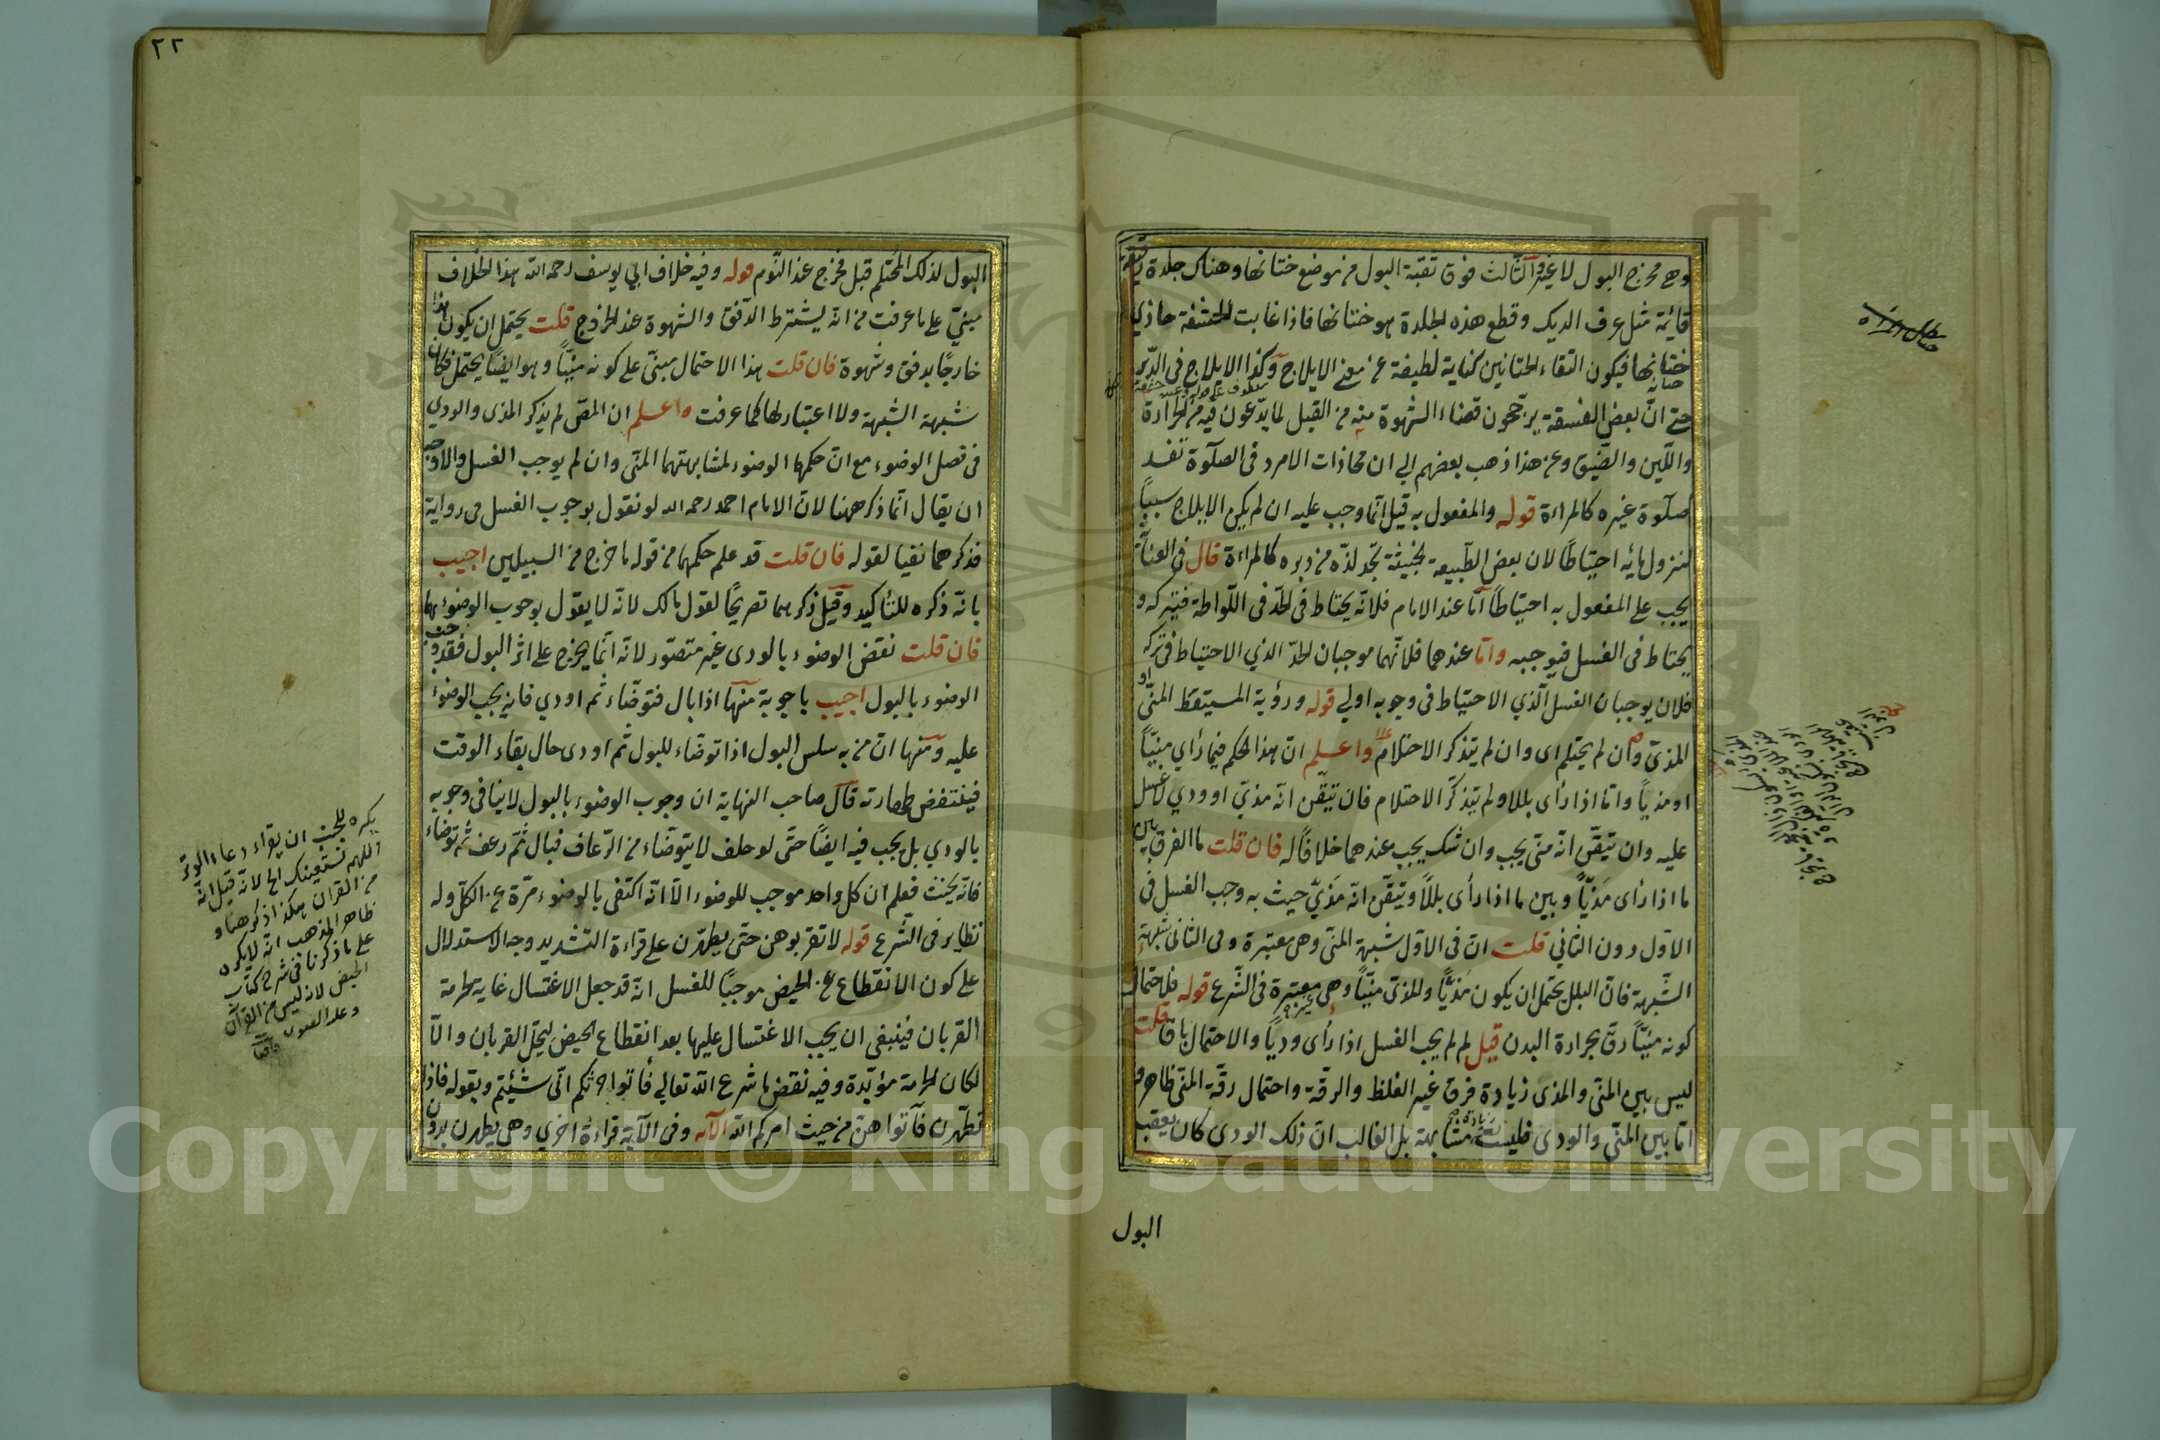 وهى مخرج البول لا غير والثالث فوق ثقبة البول من موضع ختانها وهناك جلدة رقيقة
قائمة مثل عرف الديك وقطع هذه الجلدة هو ختانها فاذا غابت الحشفة حاذى
ختانها فيكون التقاء الختانين كناية لطيفة عن معنى الايلاج وكذا الايلاج فى الدبر
حتى ان بعض الفسقة يرجحون قضاء الشهوة منه من القبل لما يدعون فيه من الحرارة
واللين والضيق وعن هذا ذهب بعضهم الى ان محاذات الامرد فى الصلوة تفسد
صلوة غيره كالمراءة قوله والمفعول به قيل انما وجب عليه ان لم يكن الايلاج سببا
لنزول مائه احتياطا لان بعض الطبيعة الخبيثة تجد لذة من دبره كالمراءة قال فى العناية
يجب على المفعول به احتياطا اما عند الامام فلانه يحتاط فى الحد فى اللواطة فيتركه و
يحتاط فى الغسل فيوجبه واما عندهما فلانهما موجبان الحد الذي الاحتياط فى تركه
فلان يوجبان الغسل الذي الاحتياط فى وجوبه اولي قوله ورؤية المستيقظ المنى او
المذى وان لم يحتلم اى وان لم يتذكر الاحتلام واعلم ان هذا الحكم فيما رأي منيا
او مذيا واما اذا رأى بللا ولم يتذكر الاحتلام فان تيقن انه مذي او ودي لا غسل
عليه وان تيقن انه منى يجب وان شك يجب عندهما خلافا له فان قلت ما الفرق بين
ما اذا رأى مذيا وبين ما اذا رأى بللا وتيقن انه مذي حيث به وجب الغسل فى
الاول دون الثاني قلت ان فى الاول شبهة المنى وهى معتبرة وفى الثانى شبهة
الشبهة فان البلل يحتمل ان يكون مذيا والمذى منيا وهى غير معتبرة فى الشرع قوله فلاحتمال
كونه منيا رق بحرارة البدن قيل لم لم يجب الغسل اذا رأى وديا والاحتمال باق قلت
ليس بين المنى والمذى زيادة فرق غير الغلظ والرقة واحتمال رقة المنى ظاهر و
اما بين المنى والودى فليست زيادة مشابهة بل الغالب ان ذلك الودى كان يعقب
البول
٢٢
البول لذلك المحتلم قبل فخرج عند النوم قوله وفيه خلاف ابي يوسف رحمه الله هذا الخلاف
مبنى على ما عرفت من انه يشترط الدفق والشهوة عند الخروج قلت يحتمل ان يكون هذا
خارجا بدفق وشهوة فان قلت هذا الاحتمال مبنى على كونه منيا وهو ايضا يحتمل فكان
شبهة الشبهة ولا اعتبار لها كما عرفت واعلم ان المص لم يذكر المذى والودي
فى فصل الوضوء مع ان حكمها الوضوء لمشابهتهما المنى وان لم يوجب الغسل والاوجه
ان يقال انما ذكر ههنا لان الامام احمد رحمه الله يقول بوجوب الغسل فى رواية
فذكرهما نفيا لقوله فان قلت قد علم حكمهما من قوله ما خرج من السبيلين اجيب
بانه ذكره للتأكيد وقيل ذكرهما تصريحا لقول مالك لانه لا يقول بوجوب الوضوء بهما
فان قلت نقض الوضوء بالودى غير متصور لانه انما يخرج على اثر البول فقد وجب
الوضوء بالبول اجيب باجوبة منها اذا بال فتوضاء ثم اودي فانه يجب الوضوء
عليه ومنها ان من به سلس البول اذا توضاء للبول ثم اودى حال بقاء الوقت
فينتقض طهارته قال صاحب النهاية ان وجوب الوضوء بالبول لا ينافى وجوبه
بالودي بل يجب فيه ايضا حتى لو حلف لا يتوضاء من الرعاف فبال ثم رعف ثم توضاء
فانه يحنث فعلم ان كل واحد موجب للوضوء الا انه اكتفى بالوضوء مرة عن الكل وله
نظاير فى الشرع قوله لا تقربوهن حتى يطهرن على قراءة التشديد وجه الاستدلال
على كون الانقطاع عن الحيض موجبا للغسل انه قد جعل الاغتسال غاية لحرمة
القربان فينبغى ان يجب الاغتسال عليها بعد انقطاع الحيض ليحل القربان والا
لكان الحرمة مؤبدة وفيه نقض ما شرع الله تعالى فأتوا حرثكم انى شئيتم وبقوله فاذا
تطهرن فأتوا هن من حيث امركم الله الآية وفى الآية قراءة اخرى وهى يطهرن بدون
يكره للجنب ان يقراء دعاء الوتر
اللهم نستعينك الخ لانه قيل انه
من القران هكذا ذكر هنا و
ظاهر المذهب انه لا يكره
على ما ذكرنا فى شرح كتاب
الحيض لانه ليس من القرآن
وعليه الفتوى
Copyright © King Saud University